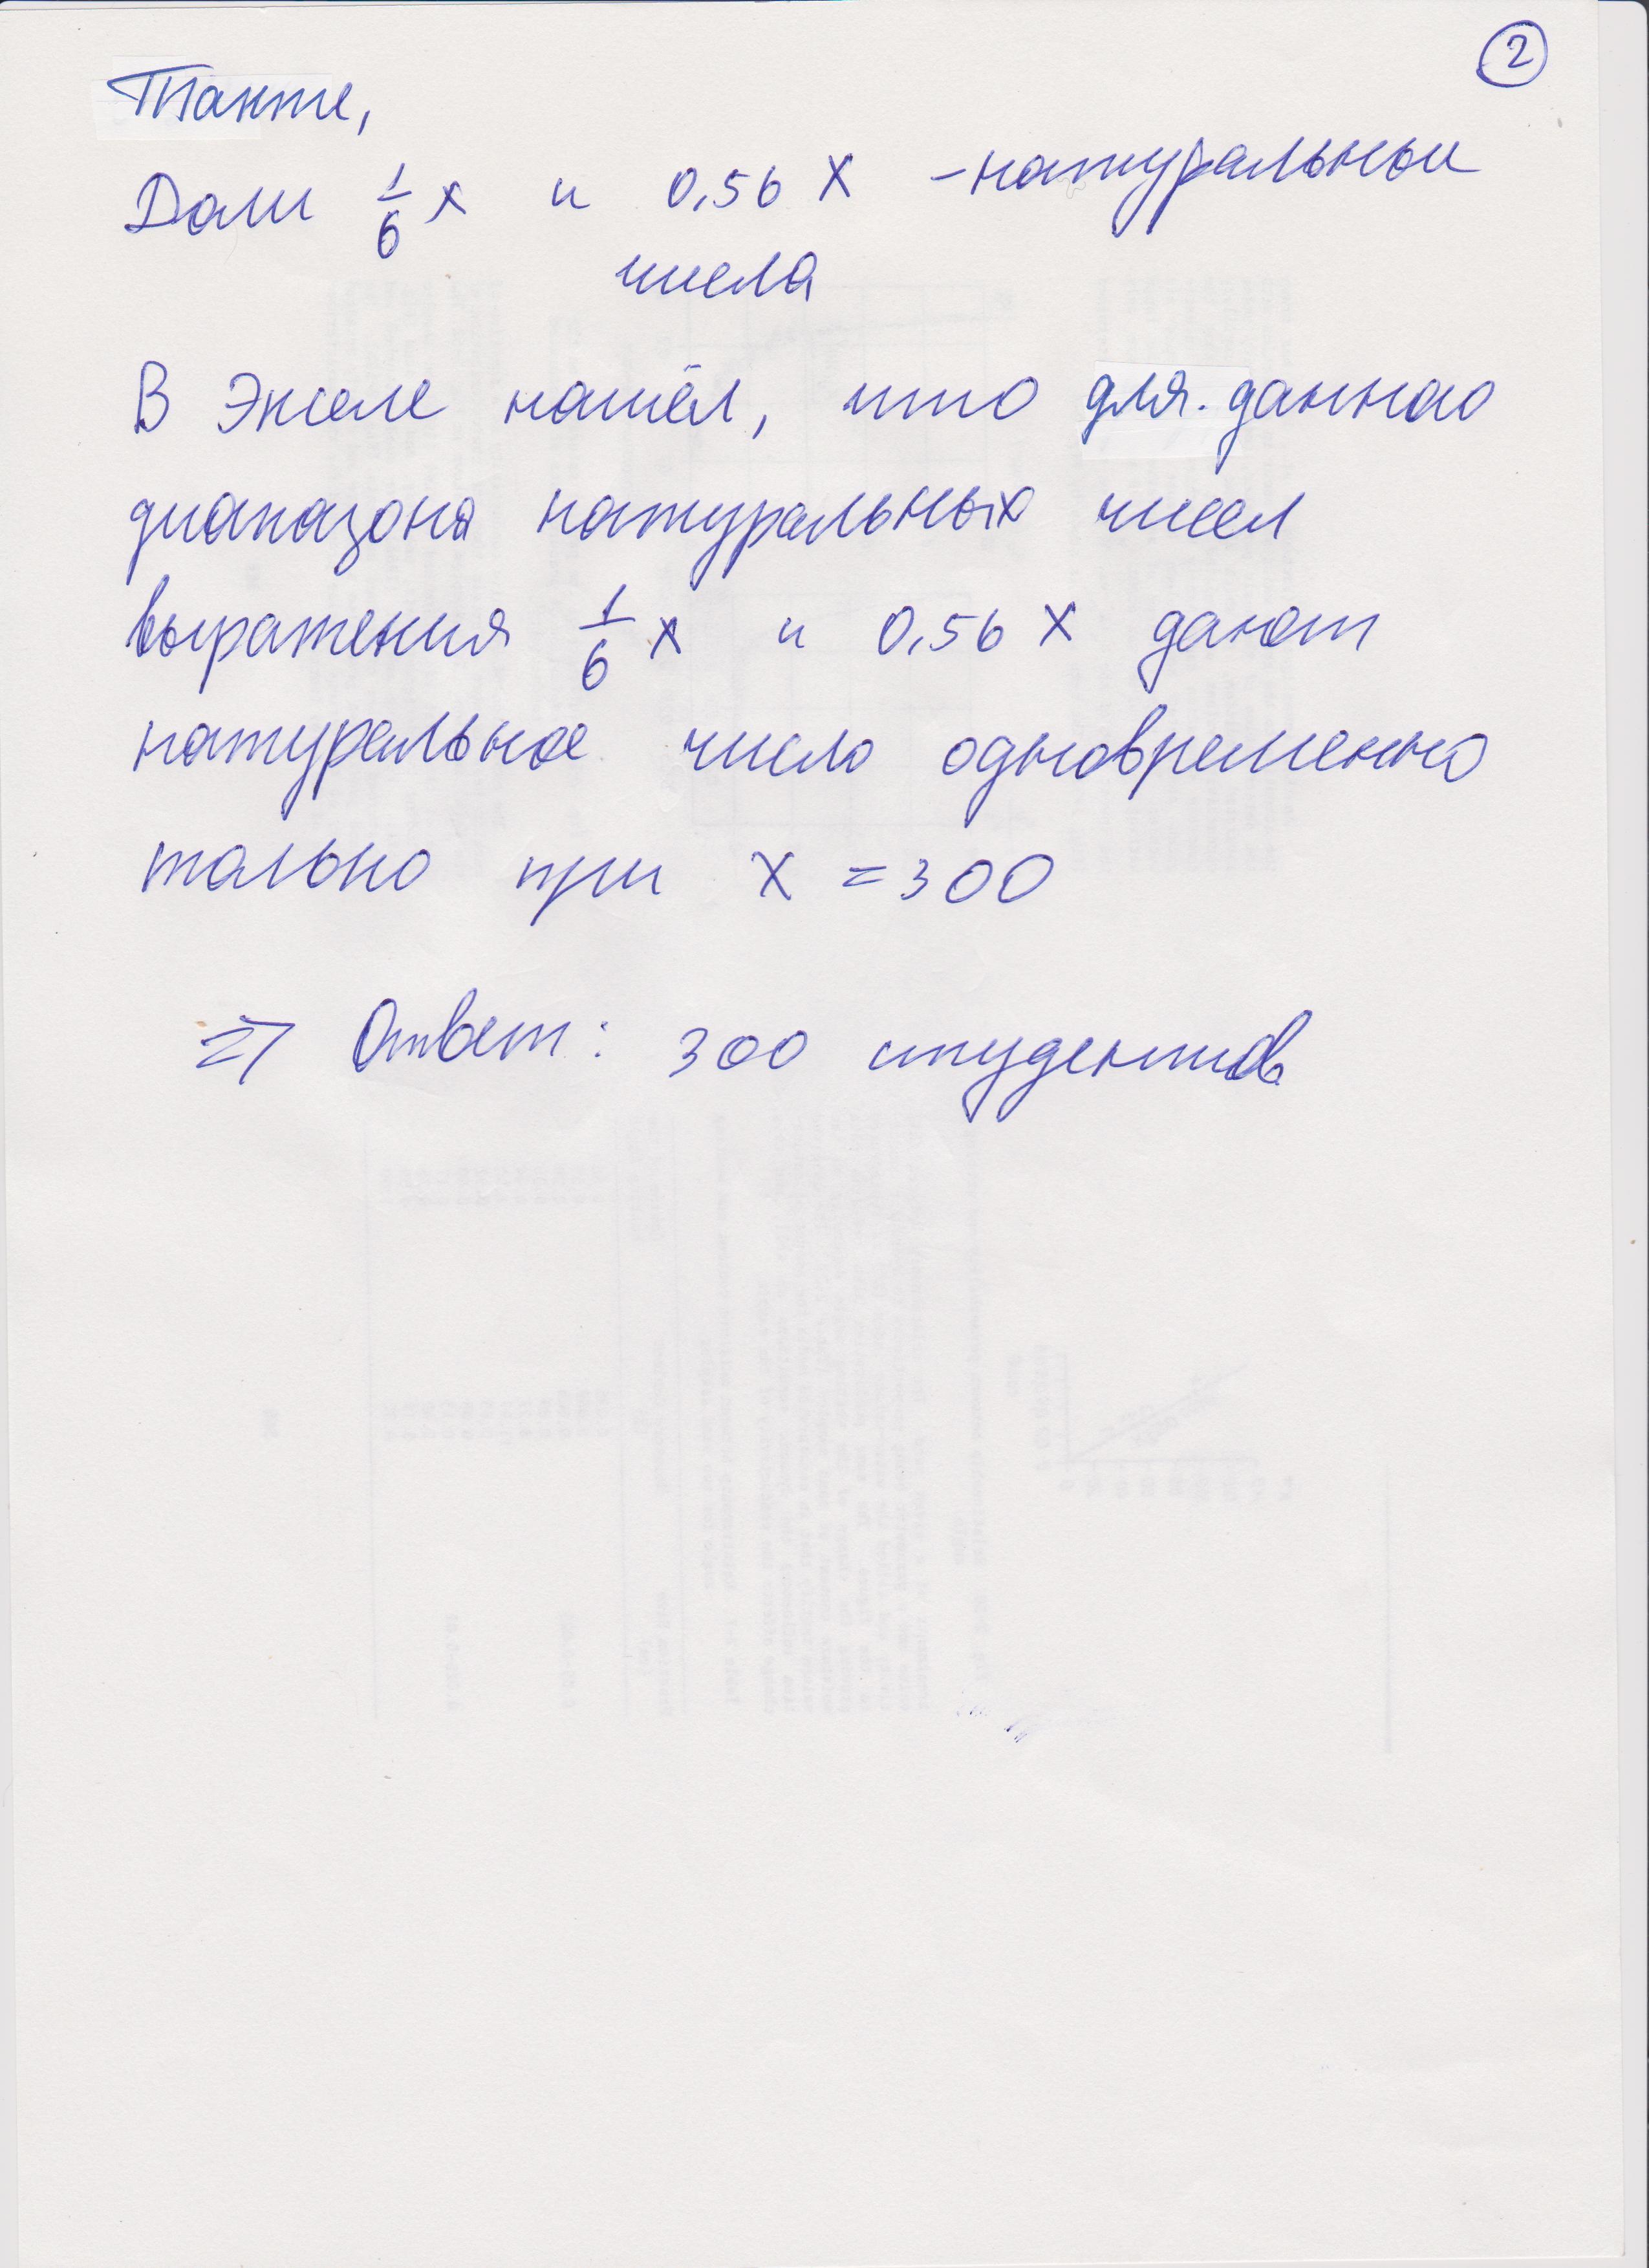 2
Также,
Доли 1/6 x и 0,56 x - натуральные
числа
В Экселе нашёл, что для данного
диапазона натуральных чисел
выражения 1/6 x и 0,56 x дают
натуральное число одновременно
только при x = 300
=> Ответ: 300 студентов